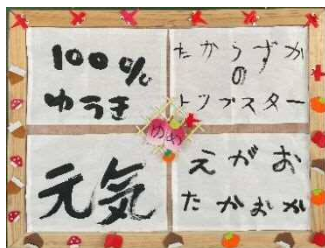 100%
ゆうき
たからずか
の
トップスター
ゆめ
元気
えがお
たかおか